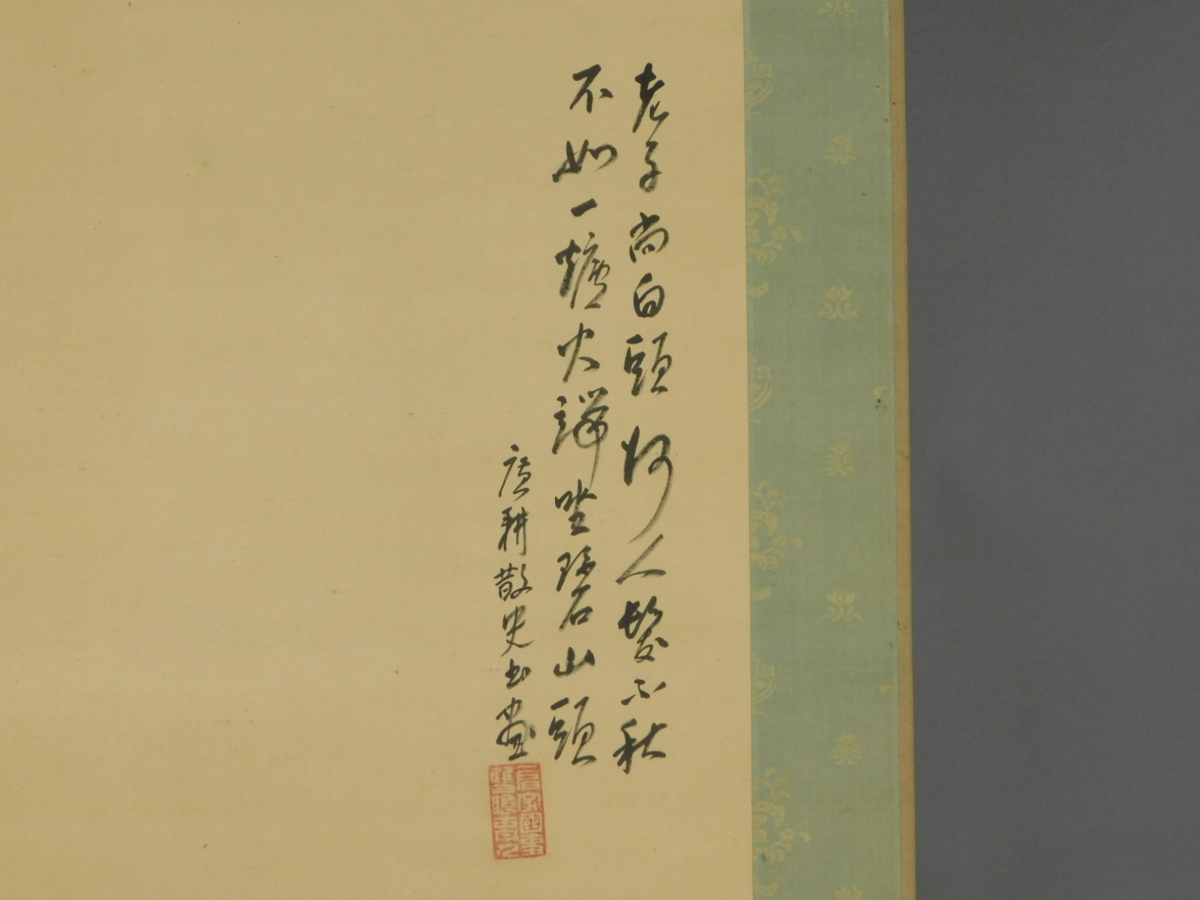 老子尚白頭何人髮不秋
不如一爐火端坐碧山頭
廣耕散史书畫